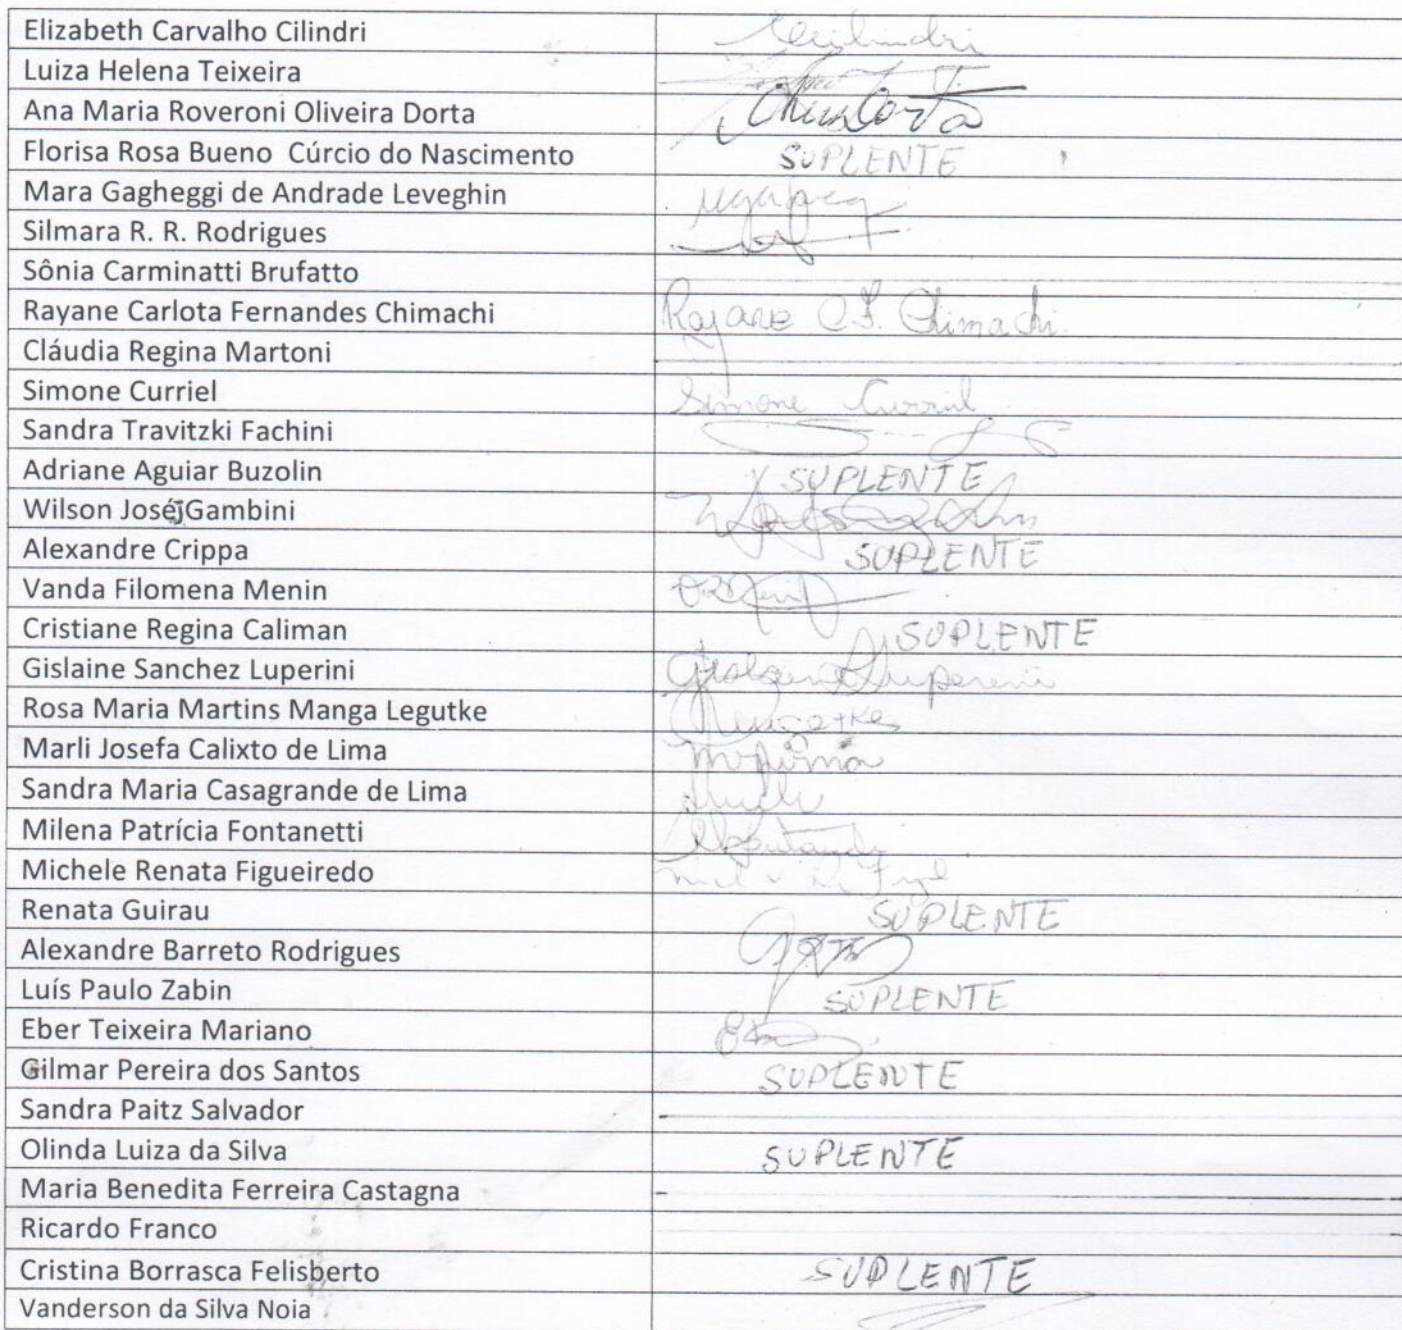 Elizabeth Carvalho Cilindri
Luiza Helena Teixeira
Ana Maria Roveroni Oliveira Dorta
Florisa Rosa Bueno Cúrcio do Nascimento SUPLENTE
Mara Gagheggi de Andrade Leveghin
Silmara R. R. Rodrigues
Sônia Carminatti Brufatto
Rayane Carlota Fernandes Chimachi Rayane C.F. Chimachi
Cláudia Regina Martoni
Simone Curriel Simone Curriel
Sandra Travitzki Fachini
Adriane Aguiar Buzolin SUPLENTE
Wilson José Gambini
Alexandre Crippa SUPLENTE
Vanda Filomena Menin
Cristiane Regina Caliman SUPLENTE
Gislaine Sanchez Luperini
Rosa Maria Martins Manga Legutke
Marli Josefa Calixto de Lima
Sandra Maria Casagrande de Lima
Milena Patrícia Fontanetti
Michele Renata Figueiredo
Renata Guirau SUPLENTE
Alexandre Barreto Rodrigues
Luís Paulo Zabin SUPLENTE
Eber Teixeira Mariano
Gilmar Pereira dos Santos SUPLENTE
Sandra Paitz Salvador
Olinda Luiza da Silva SUPLENTE
Maria Benedita Ferreira Castagna
Ricardo Franco
Cristina Borrasca Felisberto SUPLENTE
Vanderson da Silva Noia